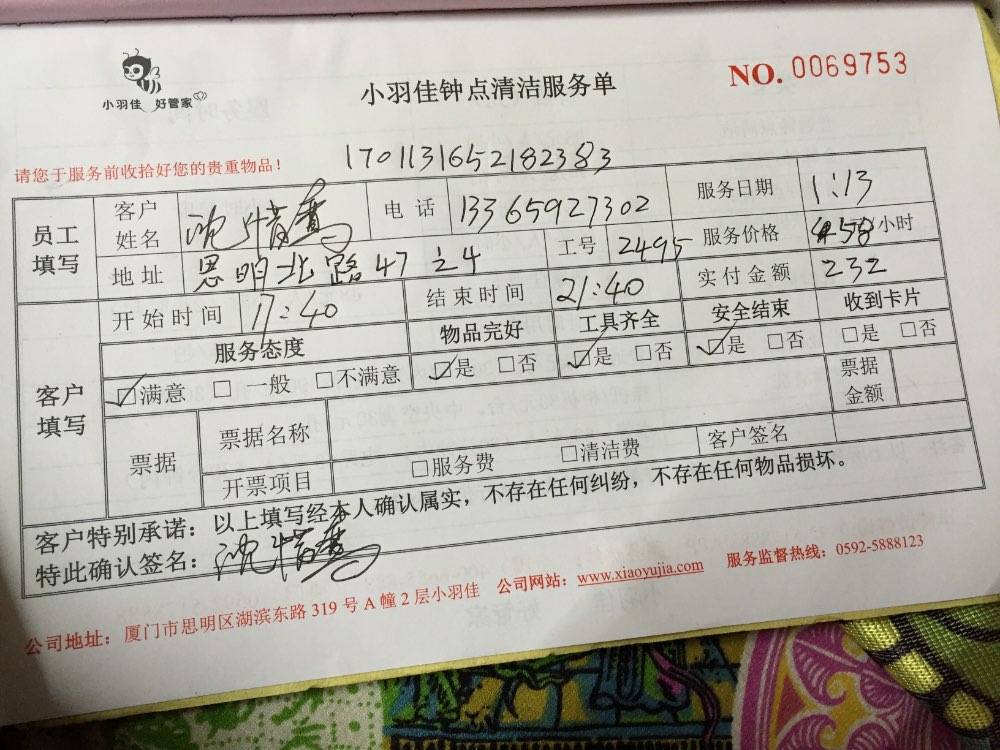 小羽佳 好管家
小羽佳钟点清洁服务单
NO. 0069753
请您于服务前收拾好您的贵重物品！
1701131652182383
员工填写
客户姓名 沈 电话 13365927302 服务日期 1:13
地址 思明北路47 工号 2495 服务价格 58/小时
开始时间 17:40 结束时间 21:40 实付金额 232
客户填写
服务态度 物品完好 工具齐全 安全结束 收到卡片
☑满意 □一般 □不满意 ☑是 □否 ☑是 □否 ☑是 □否 □是 □否
票据 票据名称 票据金额
开票项目 □服务费 □清洁费 客户签名
客户特别承诺：以上填写经本人确认属实，不存在任何纠纷，不存在任何物品损坏。
特此确认签名：沈
公司地址：厦门市思明区湖滨东路319号A幢2层小羽佳 公司网站：www.xiaoyujia.com 服务监督热线：0592-5888123